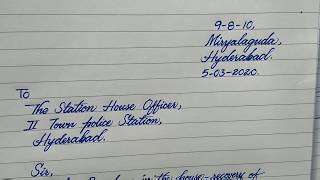 9-8-10,
Miryalaguda,
Hyderabad.
5-03-2020.
To
The Station House Officer,
II Town police Station,
Hyderabad.
Sir,
in the house - recovery of